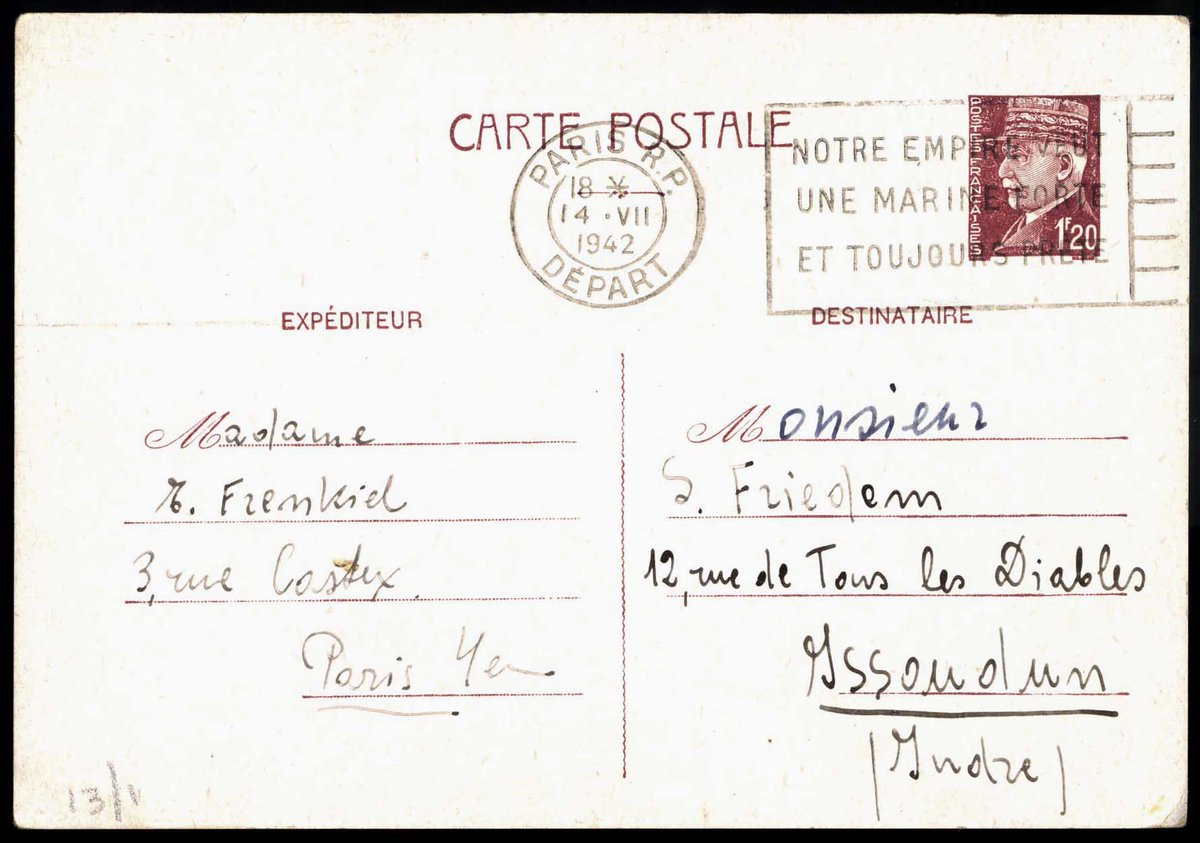 CARTE POSTALE
PARIS R.P.
18 *
14 · VII
1942
DÉPART
NOTRE EMPIRE VEUT
UNE MARINE FORTE
ET TOUJOURS PRÊTE
POSTES FRANÇAISES
1F20
EXPÉDITEUR
Madame
Frenkiel
3, rue Castex
Paris 4e
DESTINATAIRE
Monsieur
S. Friedem
12, rue de Tous les Diables
Issoudun
(Indre)